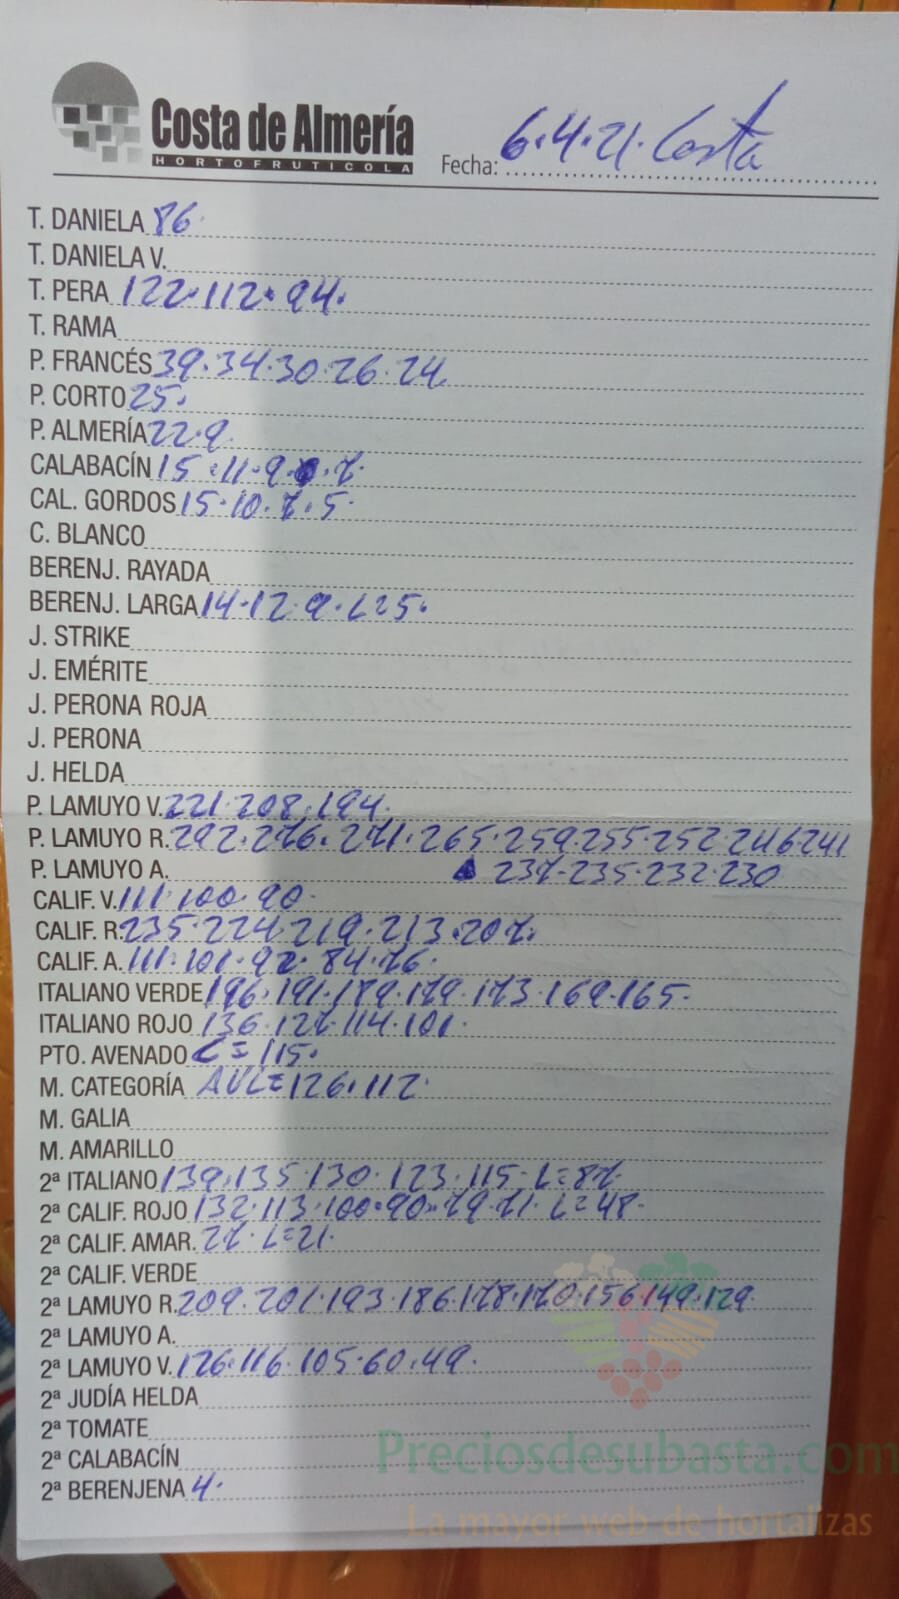 Costa de Almería
HORTOFRUTICOLA
Fecha: 6.4.21. Costa
T. DANIELA 86.
T. DANIELA V.
T. PERA 122.112.94.
T. RAMA
P. FRANCÉS 39.34.30.26.24
P. CORTO 25.
P. ALMERÍA 22.9
CALABACÍN 15.11.9. .7.
CAL. GORDOS 15.10.7.5.
C. BLANCO
BERENJ. RAYADA
BERENJ. LARGA 14.12.9.L=5.
J. STRIKE
J. EMÉRITE
J. PERONA ROJA
J. PERONA
J. HELDA
P. LAMUYO V. 221.208.194.
P. LAMUYO R. 292.276.271.265.259.255.252.246.241
P. LAMUYO A. 237.235.232.230
CALIF. V. 111.100.90.
CALIF. R. 235.224.219.213.207.
CALIF. A. 111.101.92.84.76.
ITALIANO VERDE 196.191.189.179.173.169.165.
ITALIANO ROJO 136.127.114.101.
PTO. AVENADO L=115.
M. CATEGORÍA AVL=126.112.
M. GALIA
M. AMARILLO
2ª ITALIANO 139.135.130.123.115.L=87
2ª CALIF. ROJO 132.113.100.90.79.71.L=48.
2ª CALIF. AMAR. 27.L=21.
2ª CALIF. VERDE
2ª LAMUYO R. 209.201.193.186.178.170.156.149.129
2ª LAMUYO A.
2ª LAMUYO V. 126.116.105.60.49.
2ª JUDÍA HELDA
2ª TOMATE
2ª CALABACÍN
2ª BERENJENA 4.
Preciosdesubasta.com
La mayor web de hortalizas